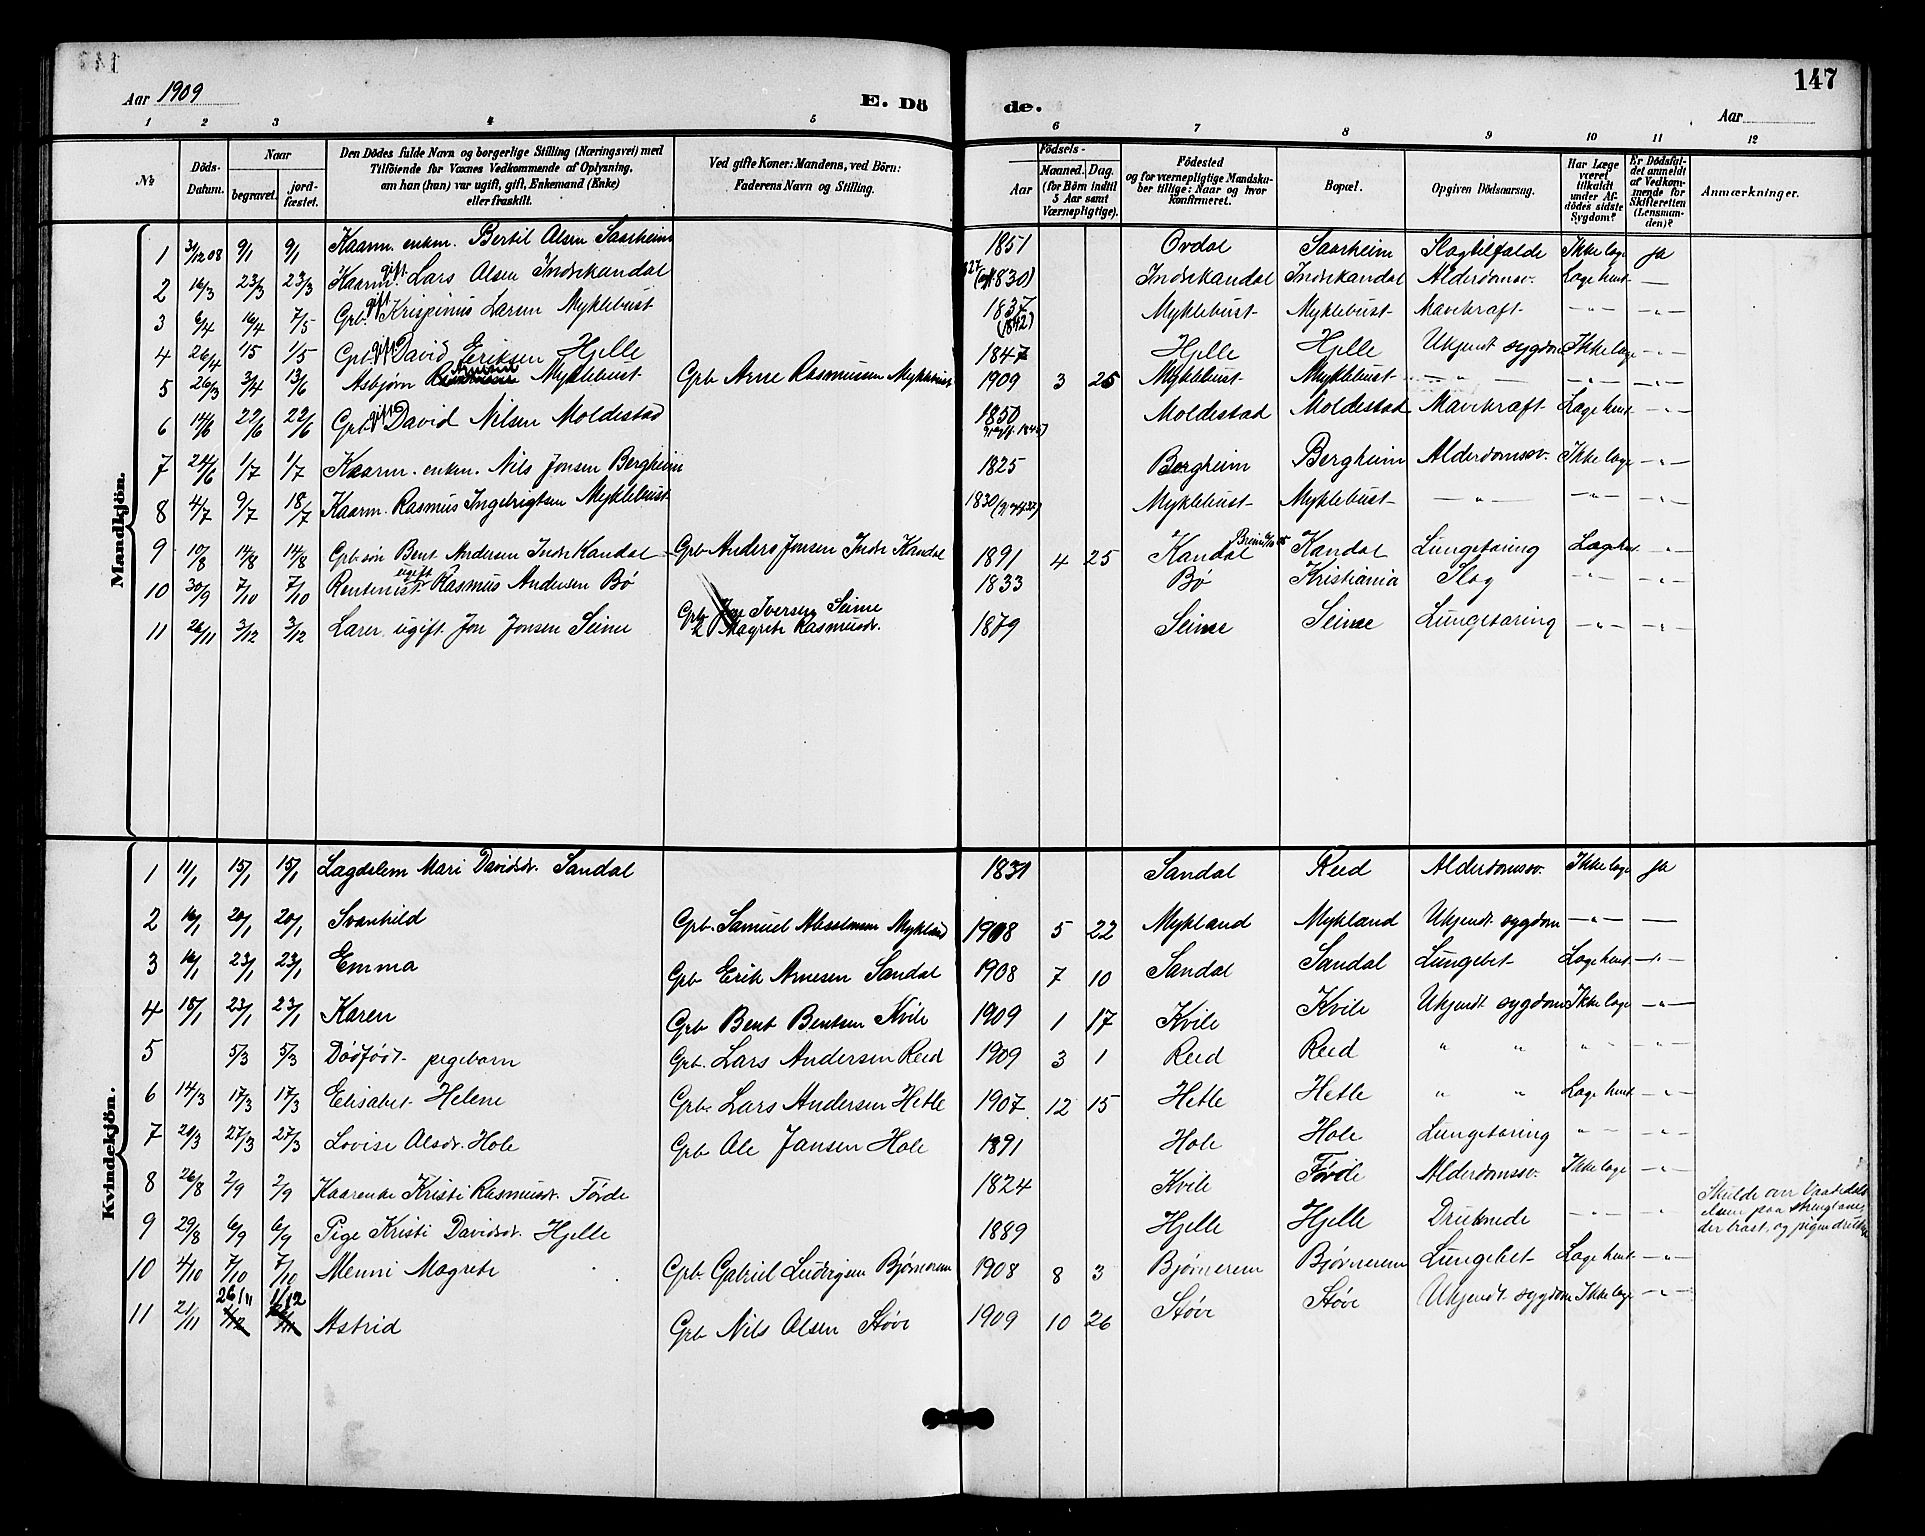 147
Aar 1909
E. Dö de.
Aar
1 2 3 4 5 6 7 8 9 10 11 12
No
Döds-Datum.
Naar
begravet.
jordfæstet.
Den Dödes fulde Navn og borgerlige Stilling (Næringsvei) med Tilföiende for Voxnes Vedkommende af Oplysning, om han (hun) var ugift, gift, Enkemand (Enke) eller fraskilt.
Ved gifte Koner: Mandens, ved Börn: Faderens Navn og Stilling.
Födsels-
Aar
Maaned. Dag.
(for Börn indtil 5 Aar samt Værnepligtige).
Födested og for værnepligtige Mandskaber tillige: Naar og hvor konfirmeret.
Bopæl.
Opgiven Dödsaarsag.
Har Læge været tilkaldt under Afdödes sidste Sygdom?
Er Dödsfaldet anmeldt af Vedkommende for Skifteretten (Lensmanden)?
Anmærkninger.
Mandkjön.
1 31/12 08 9/1 9/1 Kaarm. enkm. Bertil Olsen Saarheim 1851 Ordal Saarheim Slagtilfælde Ikke læge Ja
2 16/3 23/3 23/3 Kaarm. gift Lars Olsen Indrekandal (1830) Indrekandal Indrekandal Alderdomssv. Læge hent —
3 6/4 16/4 7/5 Grb. gift Krispinus Larsen Myklebust 1837 (1842) Myklebust Myklebust Mavekræft —"— —"—
4 26/4 1/5 1/5 Grb. gift David Eriksen Hjelle 1847 Hjelle Hjelle Ukjendt sygdom Ikke læge —"—
5 26/3 3/4 13/6 Asbjørn Arnesen Myklebust Grb Arne Rasmussen Myklebust 1909 3 25 Myklebust Myklebust —"— —"— —"—
6 14/6 22/6 22/6 Grb. gift David Nilsen Moldestad 1850 Moldestad Moldestad Mavekræft Læge hent —"—
7 24/6 1/7 1/7 Kaarm. enkm. Nils Jonsen Bergheim 1825 Bergheim Bergheim Alderdomssv. Ikke læge —"—
8 4/7 9/7 18/7 Kaarm. Rasmus Ingebrigtsen Myklebust 1830 Myklebust Myklebust —"— —"— —"—
9 10/8 14/8 14/8 Grb. søn Bent Andersen Indre Kandal Grb Anders Jonsen Indre Kandal 1891 4 25 Kandal Kandal Lungetæring Læge hent —"—
10 30/9 7/10 7/10 Rentenist. ugift Rasmus Andersen Bø 1833 Bø Kristiania Slag —"— —"—
11 26/11 3/12 3/12 Lærer ugift. Jon Jonsen Seime Grb Jon Iversen Seime & Magrete Rasmusdr. 1879 Seime Seime Lungetæring —"— —"—
Kvindekjön.
1 11/1 15/1 15/1 Lægdslem Mari Davidsdr. Sandal 1831 Sandal Reed Alderdomssv. Ikke læge Ja
2 16/1 20/1 20/1 Svanhild Grb. Samuel Absalonsen Mykland 1908 5 22 Mykland Mykland Ukjendt sygdom —"— —
3 16/1 23/1 23/1 Emma Grb Erik Arnesen Sandal 1908 7 10 Sandal Sandal Lungebet. Læge hent —"—
4 18/1 23/1 23/1 Karen Grb Bent Bentsen Kvile 1909 1 17 Kvile Kvile Ukjendt sygdom Ikke læge —"—
5 5/3 5/3 Dødfødt pigebarn Grb. Lars Andersen Reed 1909 3 1 Reed Reed " " " " —"—
6 14/3 17/3 17/3 Elisabet Helene Grb. Lars Andersen Hetle 1907 12 15 Hetle Hetle " " Læge hent —"—
7 20/3 27/3 27/3 Lovise Olsdr. Hole Grb Ole Jansen Hole 1891 Hole Hole Lungetæring " " —"—
8 26/8 2/9 2/9 Kaarenke Kristi Rasmusdr. Førde 1824 Kvile Førde Alderdomssv. Ikke læge —"—
9 29/8 6/9 6/9 Pige Kristi Davidsdr. Hjelle 1889 Hjelle Hjelle Druknede —"— —"— Skulde over paa der brast, og pigen
10 4/10 7/10 7/10 Menni Magrete Grb. Gabriel Ludvigsen Bjørnerem 1908 8 3 Bjørnerem Bjørnerem Lungebet Læge hent —"—
11 21/11 26/11 1/12 Astrid Grb Nils Olsen Støve 1909 10 26 Støve Støve Ukjendt sygdom Ikke læge —"—